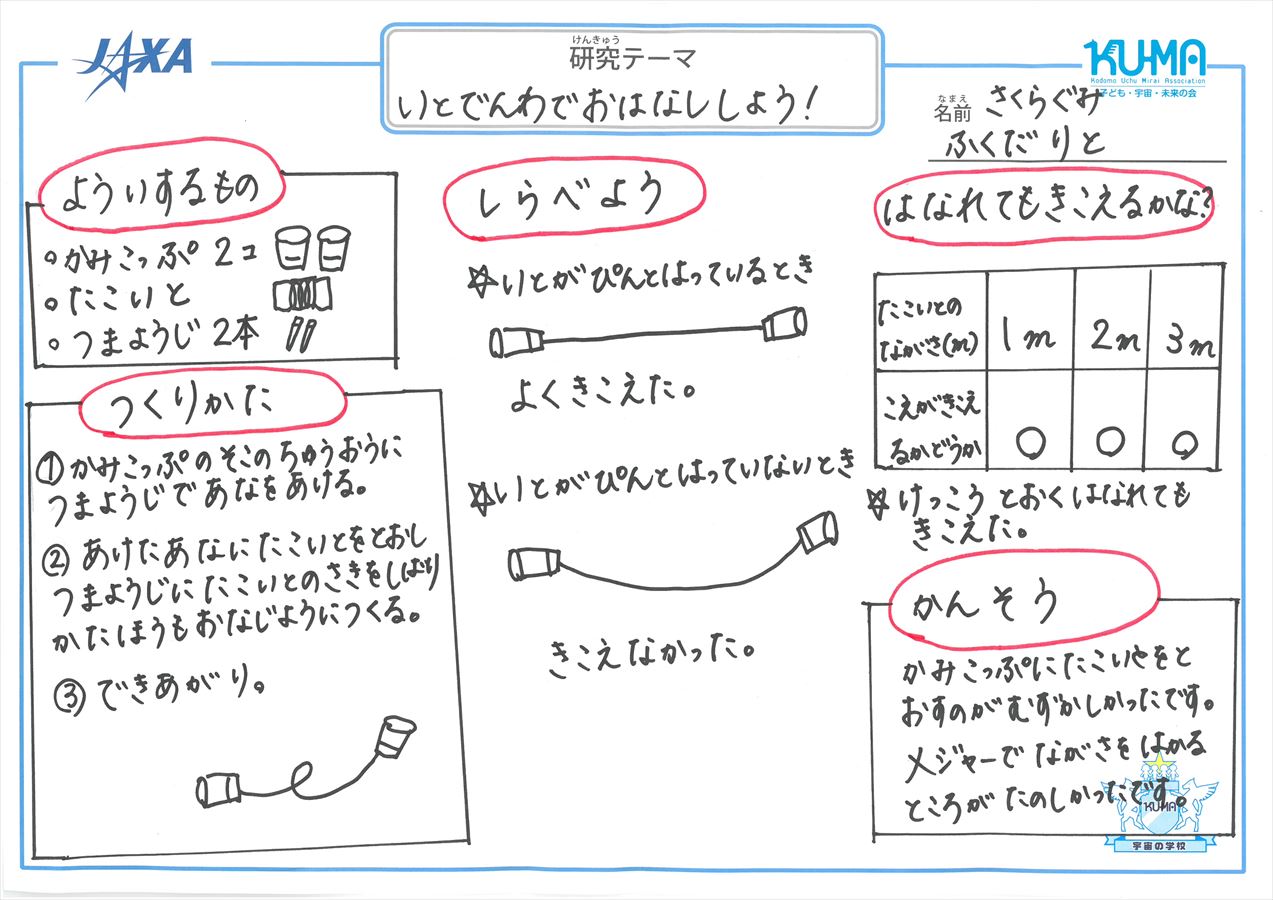 JAXA
けんきゅう
研究テーマ
いとでんわでおはなししよう!
KU-MA
Kodomo Uchu Mirai Association
子ども・宇宙・未来の会
なまえ
名前 さくらぐみ
ふくだりと
よういするもの
かみこっぷ 2コ
たこいと
つまようじ 2本
つくりかた
① かみこっぷのそこのちゅうおうに
つまようじであなをあける。
② あけたあなにたこいとをとおし
つまようじにたこいとのさきをしばり
かたほうもおなじようにつくる。
③ できあがり。
しらべよう
☆いとがぴんとはっているとき
よくきこえた。
☆いとがぴんとはっていないとき
きこえなかった。
はなれてもきこえるかな?
たこいとの
ながさ(m) 1m 2m 3m
こえがきこえ
るかどうか ○ ○ ○
☆けっこうとおくはなれても
きこえた。
かんそう
かみこっぷにたこいとをと
おすのがむずかしかったです。
メジャーでながさをはかる
ところがたのしかったです。
KUMA
宇宙の学校